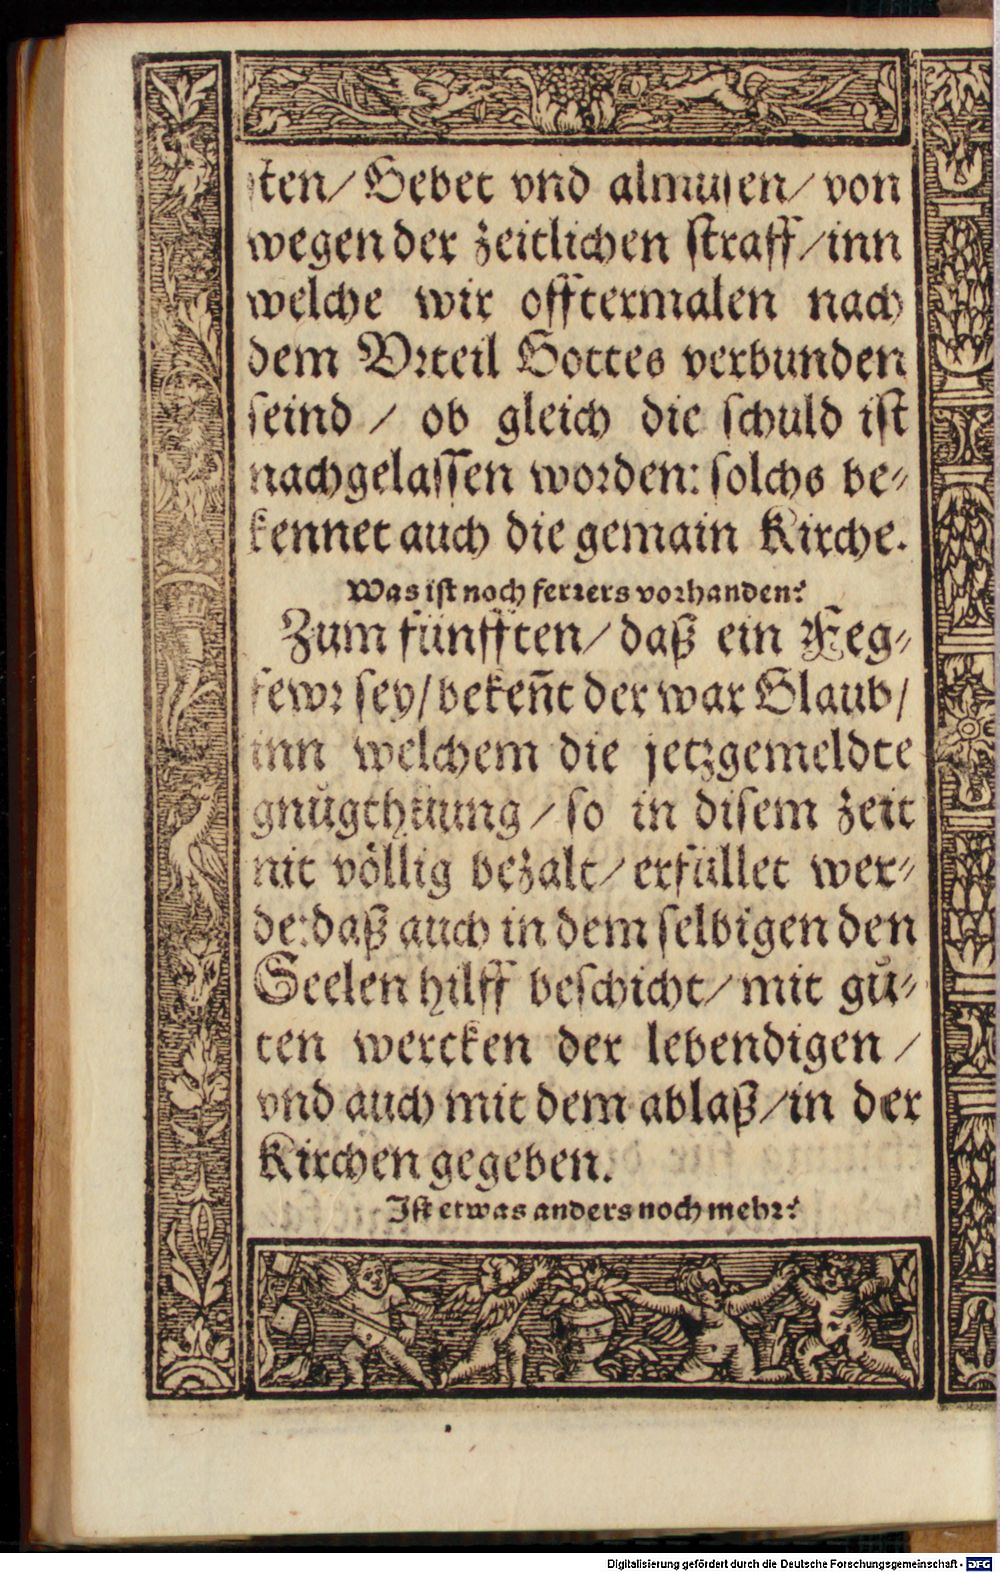 sten/ Gebet vnd almusen/ von
wegen der zeitlichen straff/ inn
welche wir offtermalen nach
dem Vrteil Gottes verbunden
seind / ob gleich die schuld ist
nachgelassen worden: solchs be-
kennet auch die gemain Kirche.
Was ist noch ferrers vorhanden?
Zum fünfften/ daß ein Feg-
fewr sey/ bekeñt der war Glaub/
inn welchem die jetzgemeldte
gnůgthuung/ so in disem zeit
nit völlig bezalt/ erfüllet wer-
de: daß auch in dem selbigen den
Seelen hilff beschicht/ mit gů-
ten wercken der lebendigen /
vnd auch mit dem ablaß/ in der
Kirchen gegeben.
Ist etwas anders noch mehr?
Digitalisierung gefördert durch die Deutsche Forschungsgemeinschaft - DFG